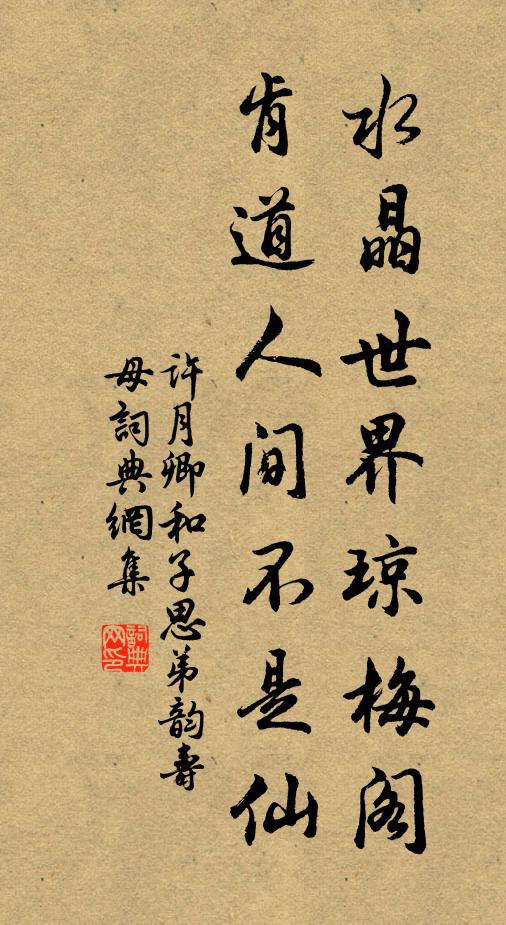 水晶世界琼梅阁
肯道人间不是仙
许月卿和子思弟韵寿
母詞典網集
詞典
网印